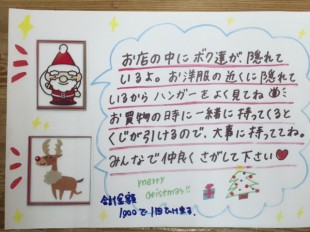 お店の中にボク達が隠れて
いるよ。お洋服の近くに隠れて
いるからハンガーをよく見てね
お買物の時に一緒に持ってくると
くじが引けるので、大事に持ってね。
みんなで仲良くさがして下さい♥
merry
christmas!!
合計金額
1000で1回ひけます。